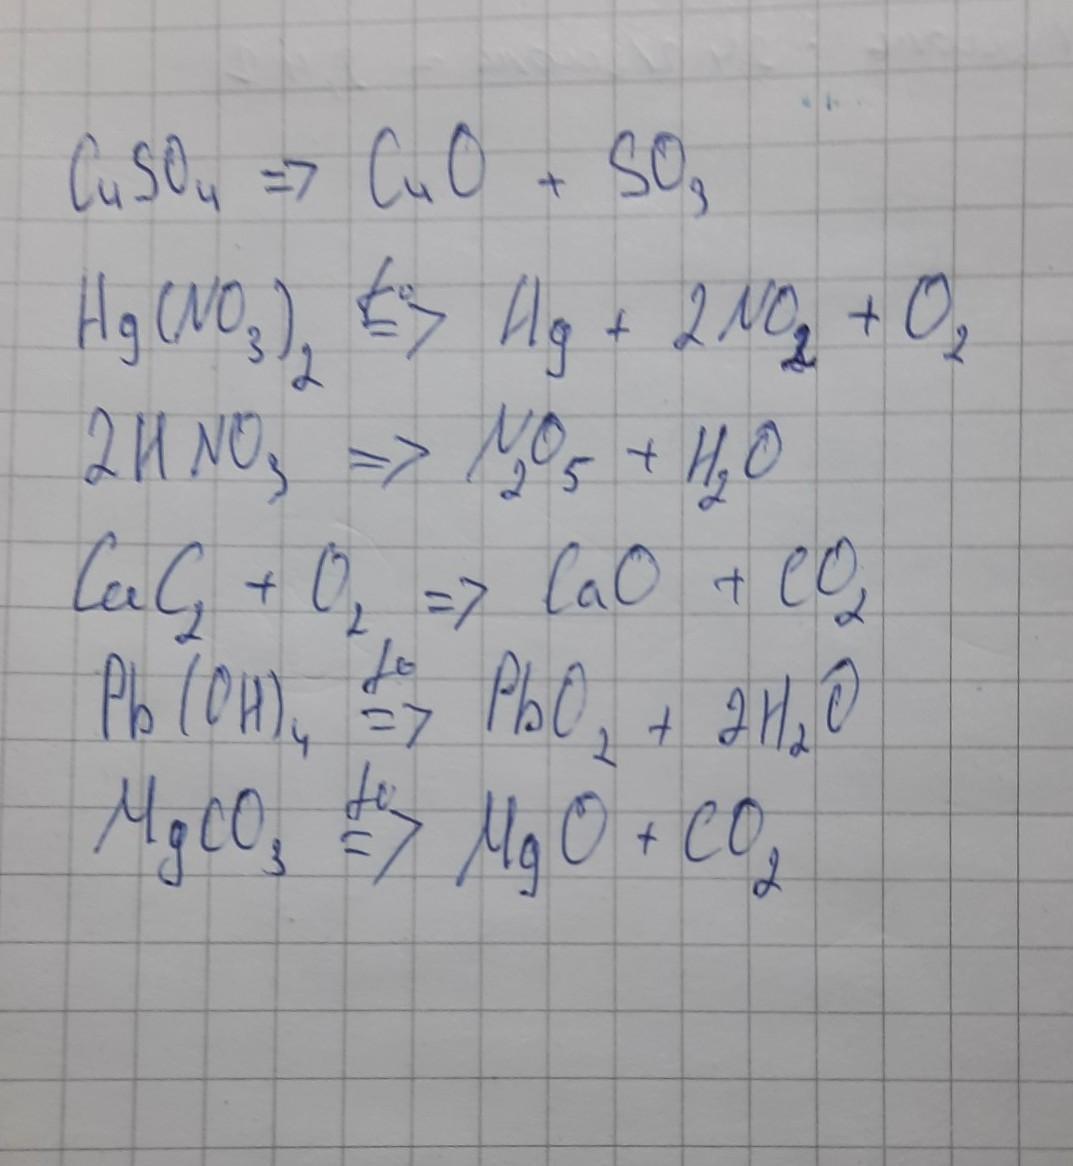 CuSO₄ => CuO + SO₃
Hg(NO₃)₂ =>(t°) Hg + 2NO₂ + O₂
2HNO₃ => N₂O₅ + H₂O
CaC₂ + O₂ => CaO + CO₂
Pb(OH)₄ =>(t°) PbO₂ + 2H₂O
MgCO₃ =>(t°) MgO + CO₂